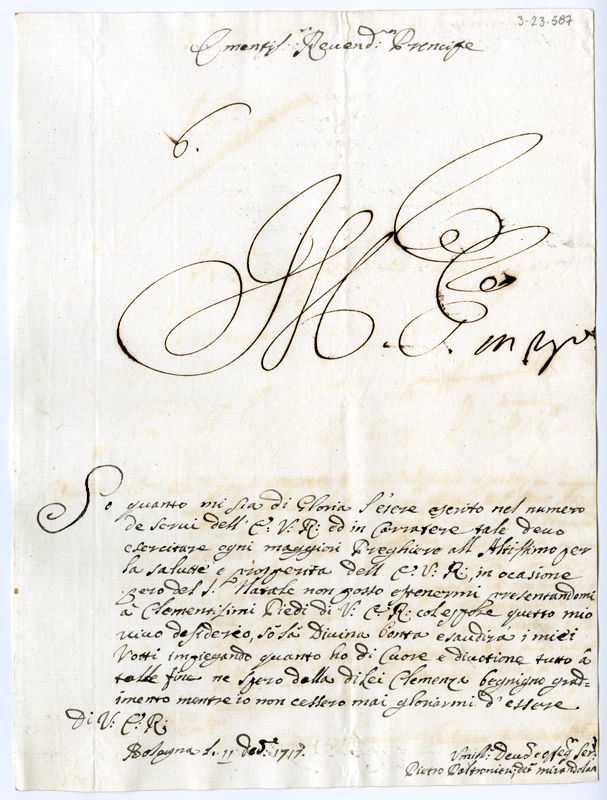 3-23-587
Ementis.mo Revend.mo Prencipe
So quanto mi sia di Gloria l'esere escrito nel numero
de servi dell' E: V: R: ed in Carratere tale devo
esercitare ogni maggiori Preghiere all Altissimo per
la salutte e prosperita dell E: V: R:, in ocasione
pero del S. Natale non posso astenermi presentandomi
à Clementisimi Piedi di V: E: R: col esporle questo mio
vivo desiderio, so la Divina Bonta esaudira i miei
Votti impiegando quanto ho di Cuore e divotione tutto â
talle fine ne spero dalla di lei Clemenza begnigno gradimento
mentre io non cessero mai gloriarmi d'essere
Di V: E: R:
Bologna li 11 Dec.e 1717
Umiliss: Dev.o Oseq.o Ser.e
Pietro Paltronieri detto mirandola